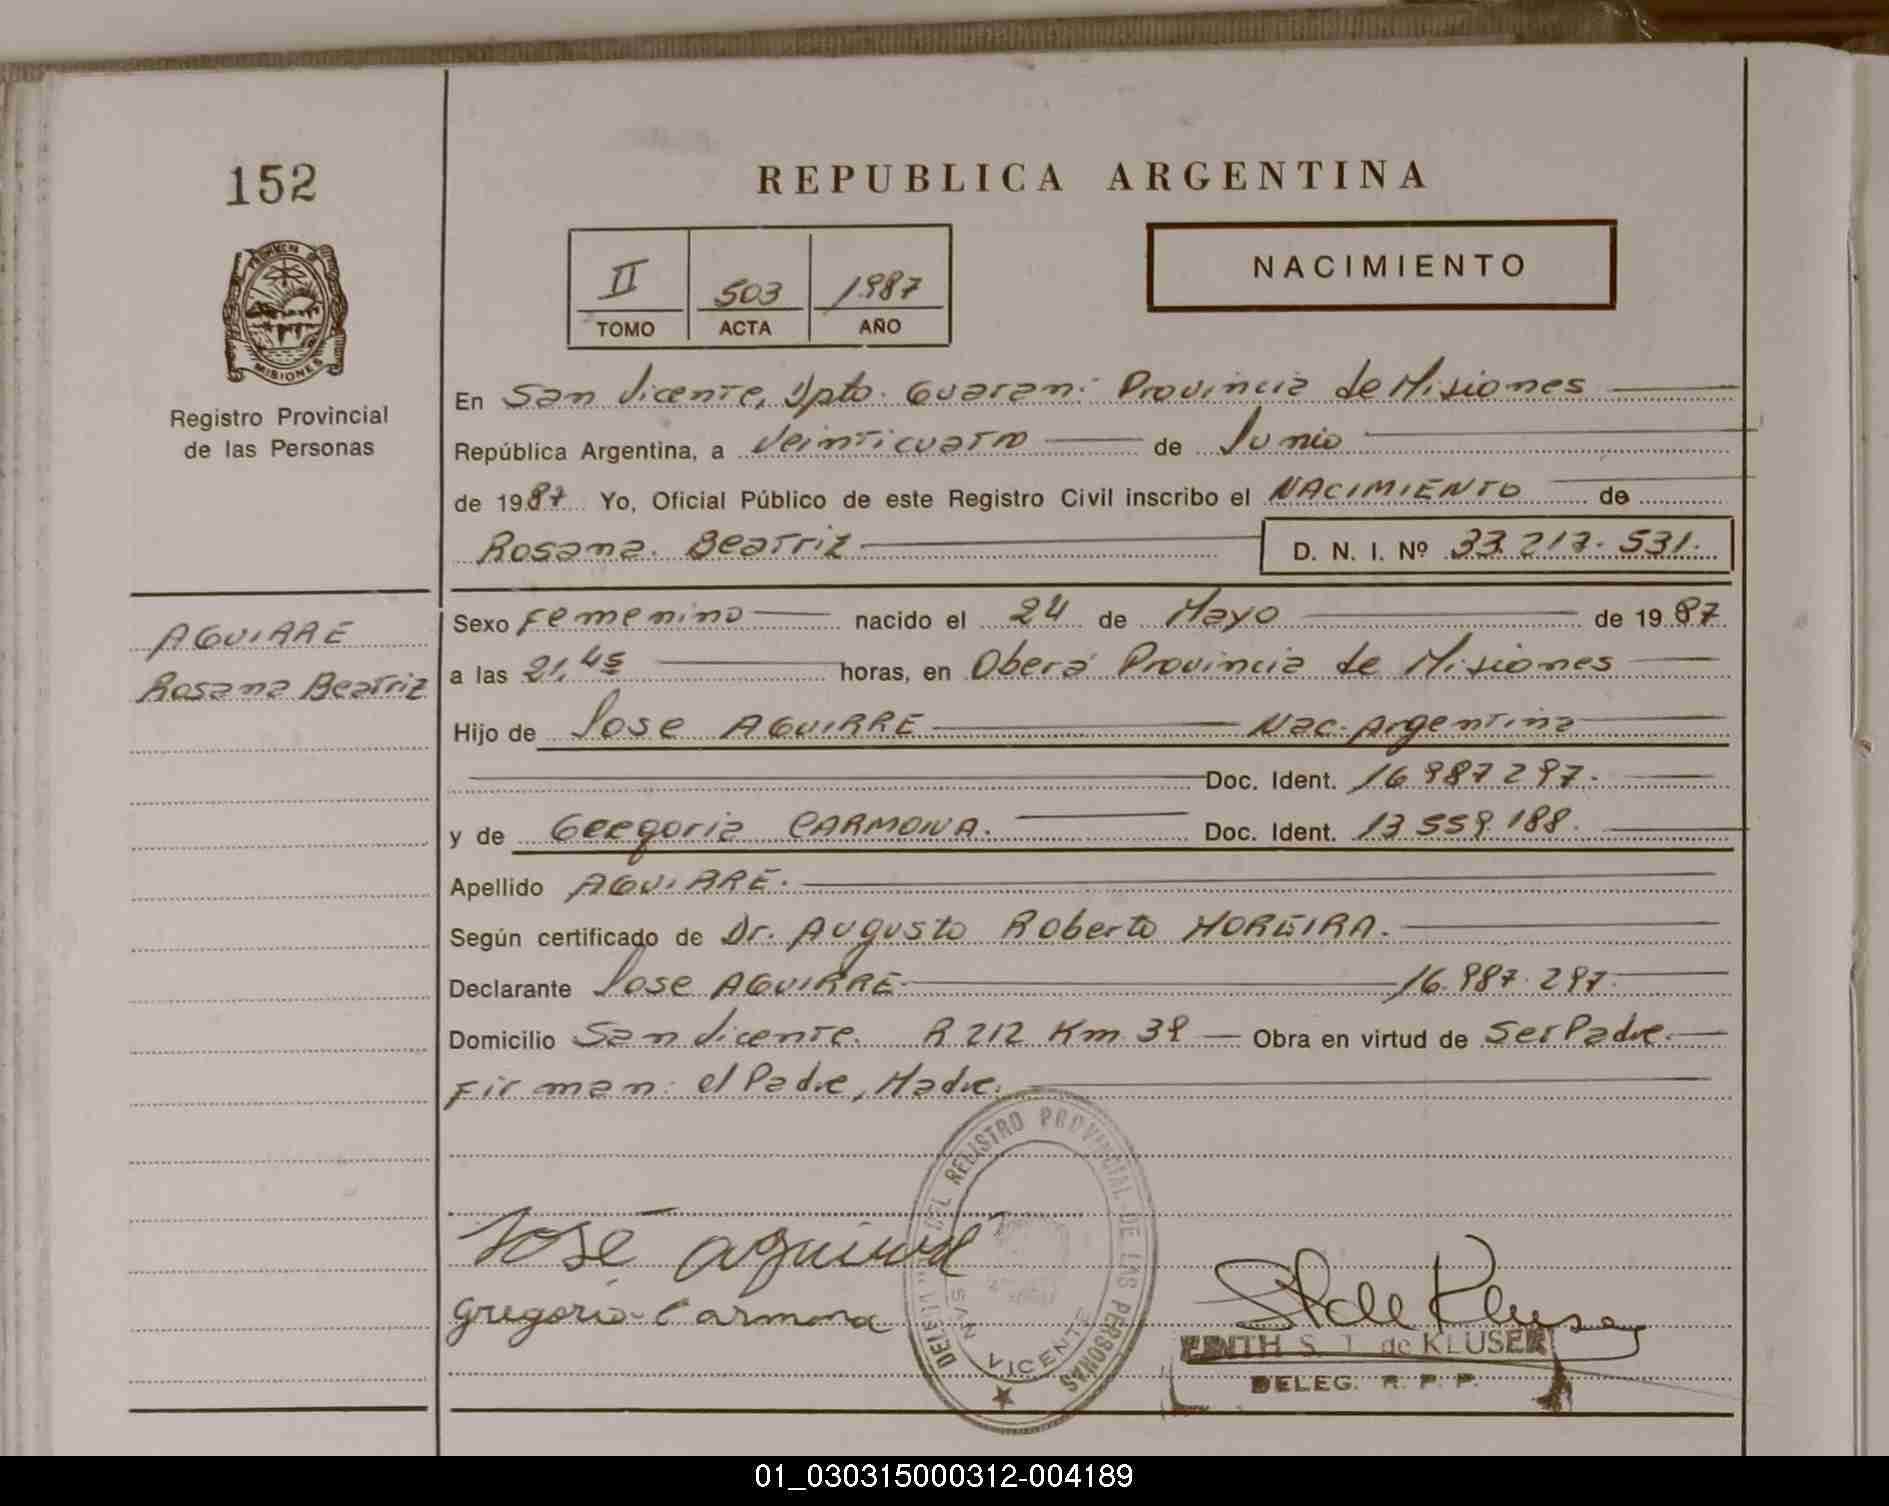 152
REPUBLICA ARGENTINA
PROVINCIA DE
MISIONES
Registro Provincial
de las Personas
II 503 1987
TOMO ACTA AÑO
NACIMIENTO
En San Vicente, Dpto. Guaraní Provincia de Misiones
República Argentina, a Veinticuatro de Junio
de 1987 Yo, Oficial Público de este Registro Civil inscribo el NACIMIENTO de
Rosana Beatriz D. N. I. Nº 33.213.531.
AGUIRRE
Rosana Beatriz
Sexo Femenino nacido el 24 de Mayo de 1987
a las 21,45 horas, en Oberá Provincia de Misiones
Hijo de Jose AGUIRRE Nac. Argentina
Doc. Ident. 16.987.297.
y de Gregoria CARMONA. Doc. Ident. 13.559.188.
Apellido AGUIRRE.
Según certificado de Dr. Augusto Roberto MOREIRA.
Declarante Jose AGUIRRE 16.987.297.
Domicilio San Vicente. R 212 Km 39 Obra en virtud de Ser Padre.
Firman: el Padre, Madre.
José aguirre
gregoria Carmona
DEL REGISTRO PROVINCIAL DE LAS PERSONAS
SAN VICENTE
EDITH S. T. de KLUSER
DELEG. R. P. P.
01_030315000312-004189